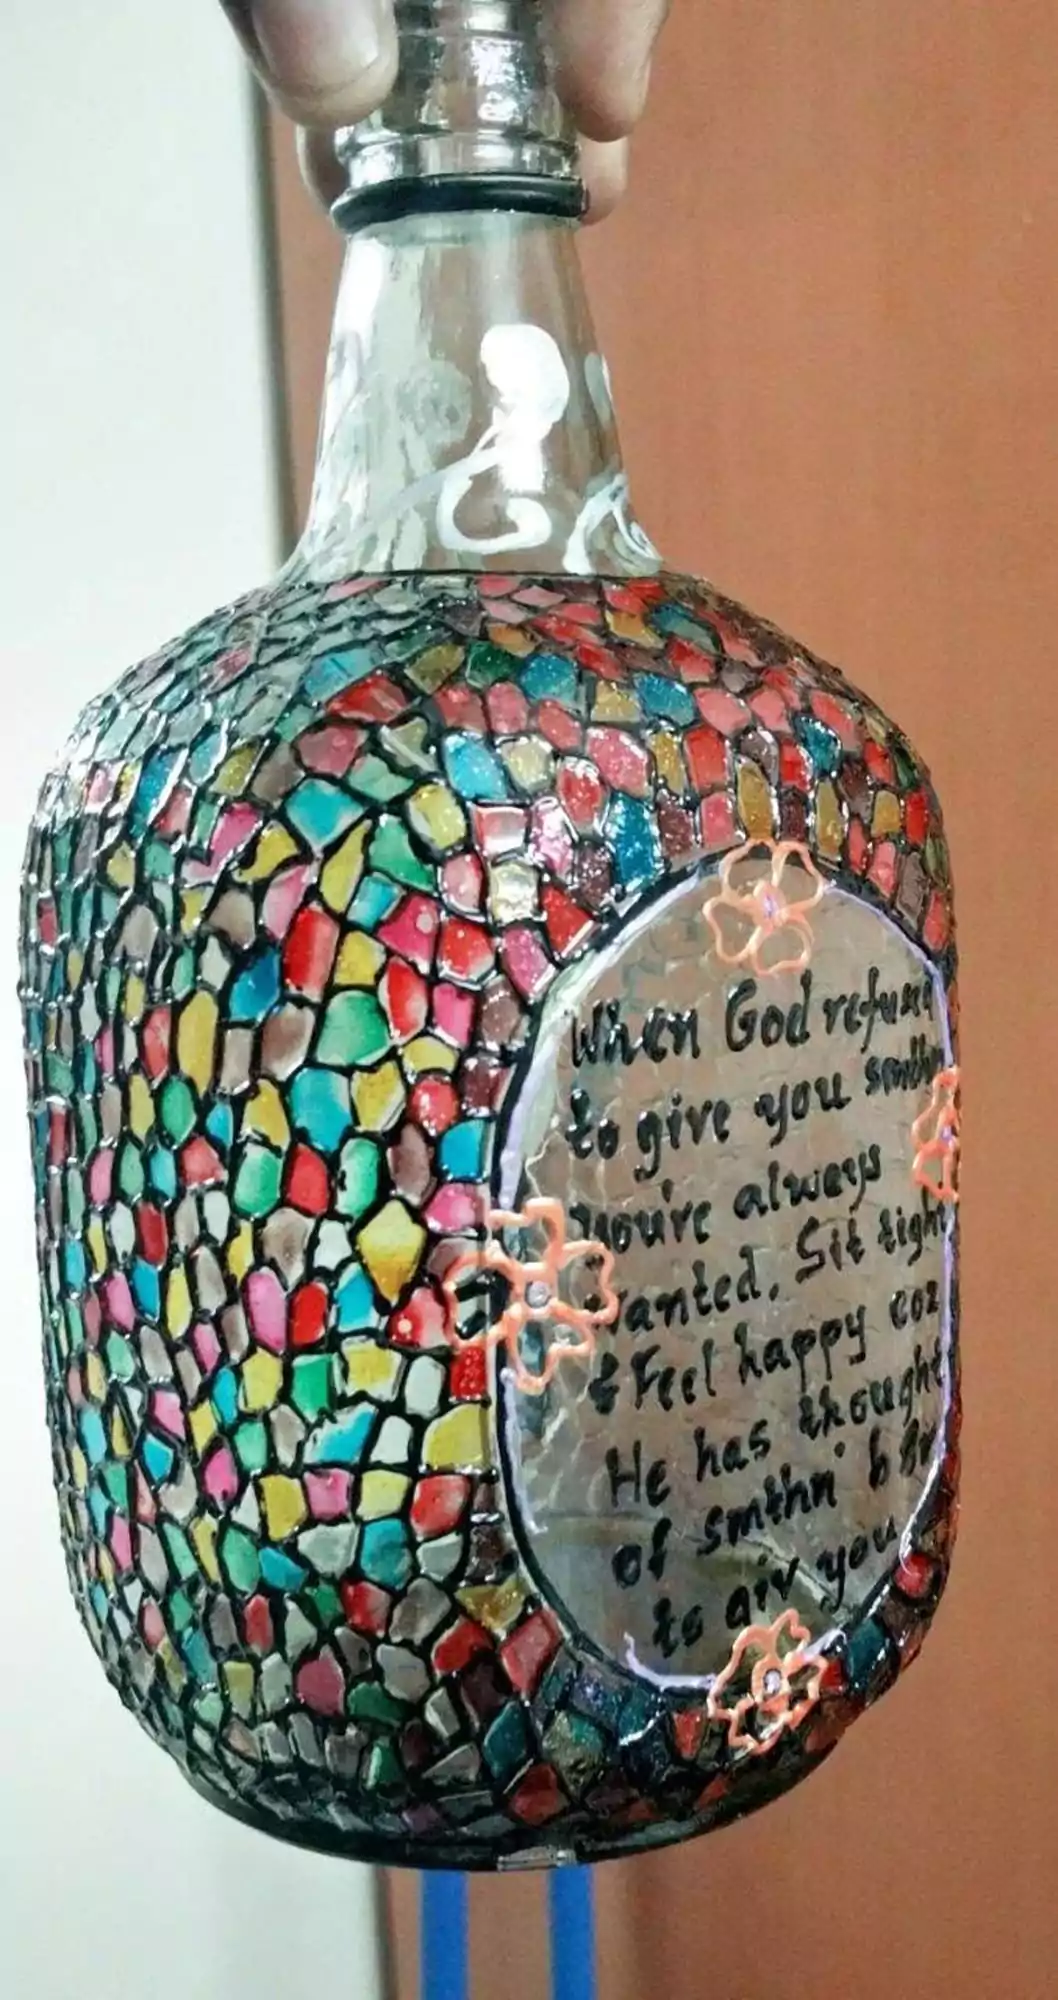 When God refuses
to give you smthn
you're always
wanted. Sit tight
& Feel happy coz
He has thought
of smthn' b
to giv you